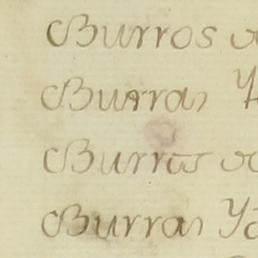 Burros
Burras
Burros
Burras